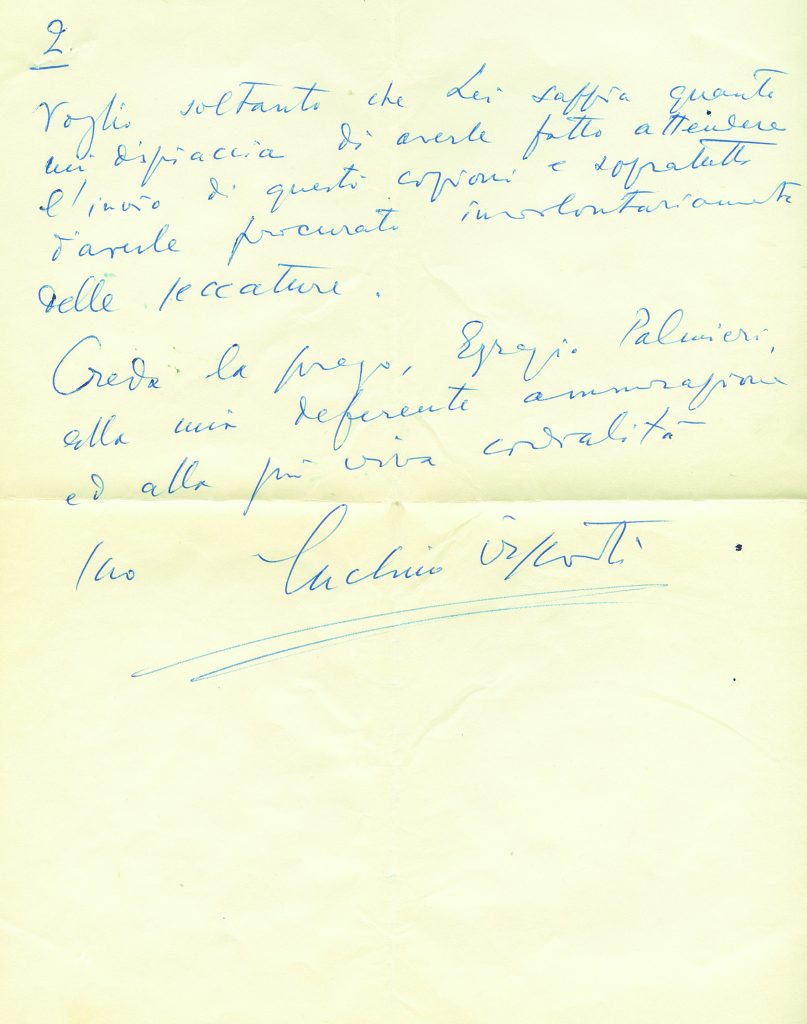 2
Voglio soltanto che Lei sappia quanto
mi dispiaccia di averle fatto attendere
l'invio di questi copioni e sopratutto
d'averle procurato involontariamente
delle seccature.
Creda la prego, Egregio Palmieri,
alla mia deferente ammirazione
ed alla più viva cordialità
suo Luchino Visconti